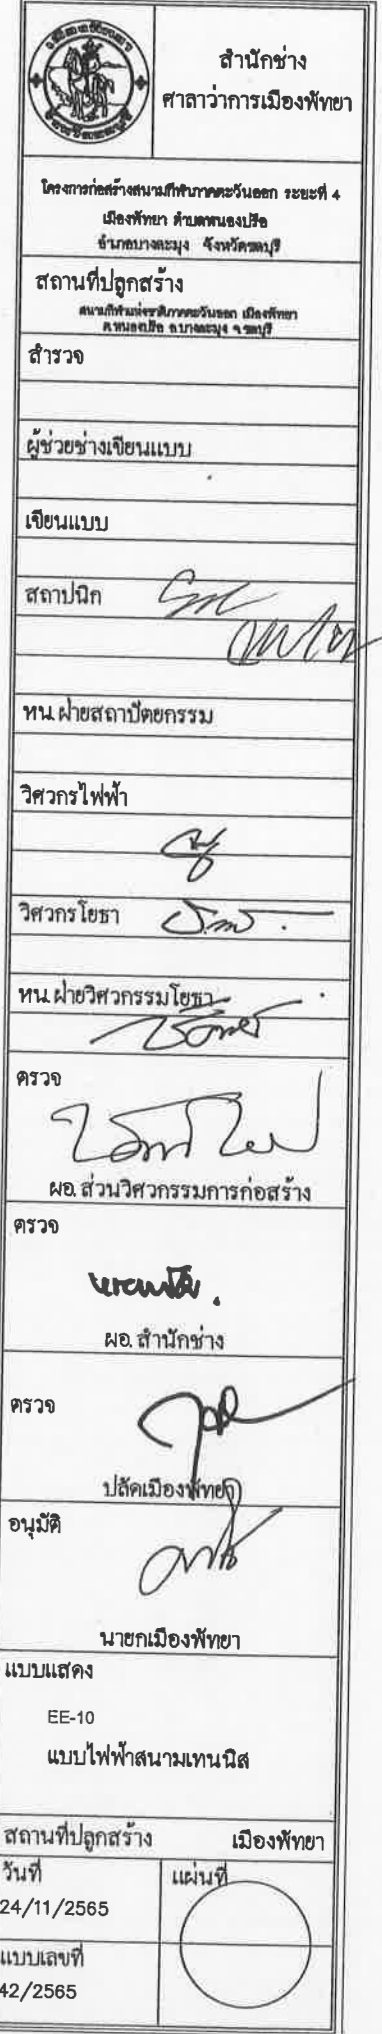 สำนักช่าง
ศาลาว่าการเมืองพัทยา
โครงการก่อสร้างสนามกีฬาภาคตะวันออก ระยะที่ 4
เมืองพัทยา ตำบลหนองปรือ
อำเภอบางละมุง จังหวัดชลบุรี
สถานที่ปลูกสร้าง
สนามกีฬาแห่งชาติภาคตะวันออก เมืองพัทยา
ต.หนองปรือ อ.บางละมุง จ.ชลบุรี
สำรวจ
ผู้ช่วยช่างเขียนแบบ
เขียนแบบ
สถาปนิก
หน.ฝ่ายสถาปัตยกรรม
วิศวกรไฟฟ้า
วิศวกรโยธา
หน.ฝ่ายวิศวกรรมโยธา
ตรวจ
ผอ.ส่วนวิศวกรรมการก่อสร้าง
ตรวจ
ผอ.สำนักช่าง
ตรวจ
ปลัดเมืองพัทยา
อนุมัติ
นายกเมืองพัทยา
แบบแสดง
EE-10
แบบไฟฟ้าสนามเทนนิส
สถานที่ปลูกสร้าง เมืองพัทยา
วันที่ แผ่นที่
24/11/2565
แบบเลขที่
42/2565